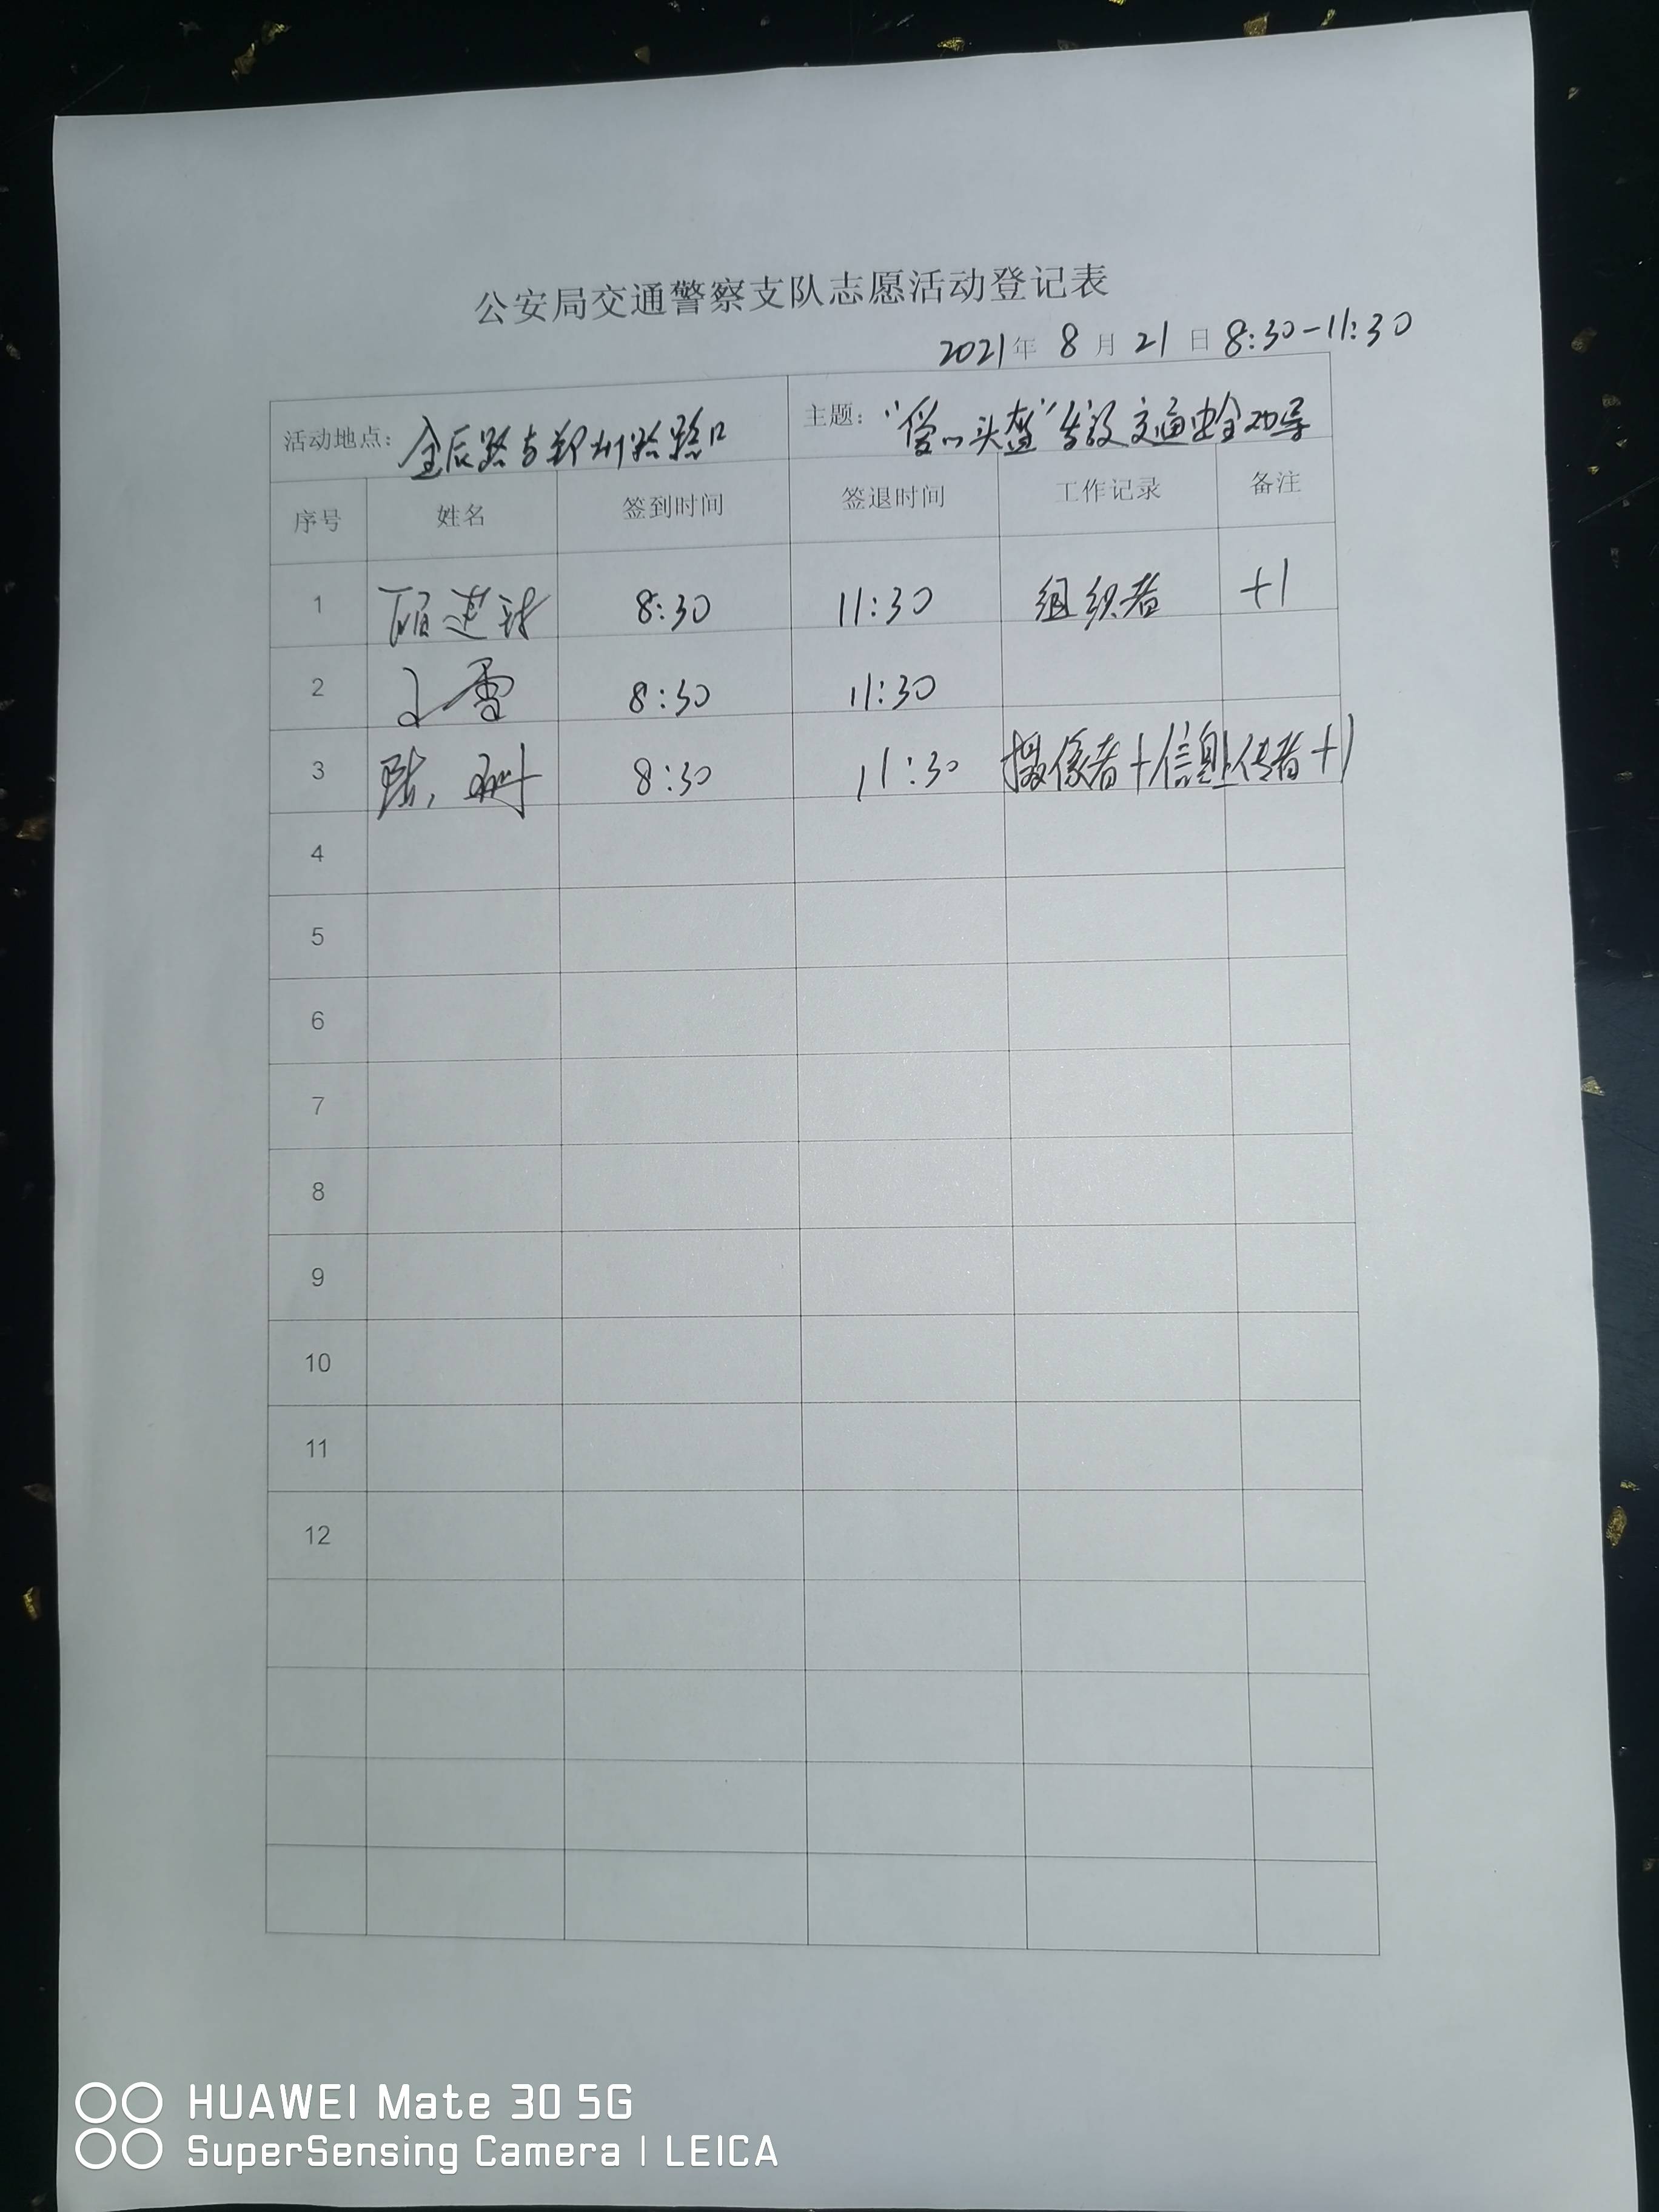 公安局交通警察支队志愿活动登记表
2021年 8月 21日 8:30-11:30
活动地点: 金辰路与郑州路路口 主题: "爱心头盔"专设交通安全劝导
序号 姓名 签到时间 签退时间 工作记录 备注
1 顾建球 8:30 11:30 组织者 +1
2 王雪 8:30 11:30
3 陈 珊 8:30 11:30 摄像者+信息上传者+1
4
5
6
7
8
9
10
11
12
HUAWEI Mate 30 5G
SuperSensing Camera | LEICA